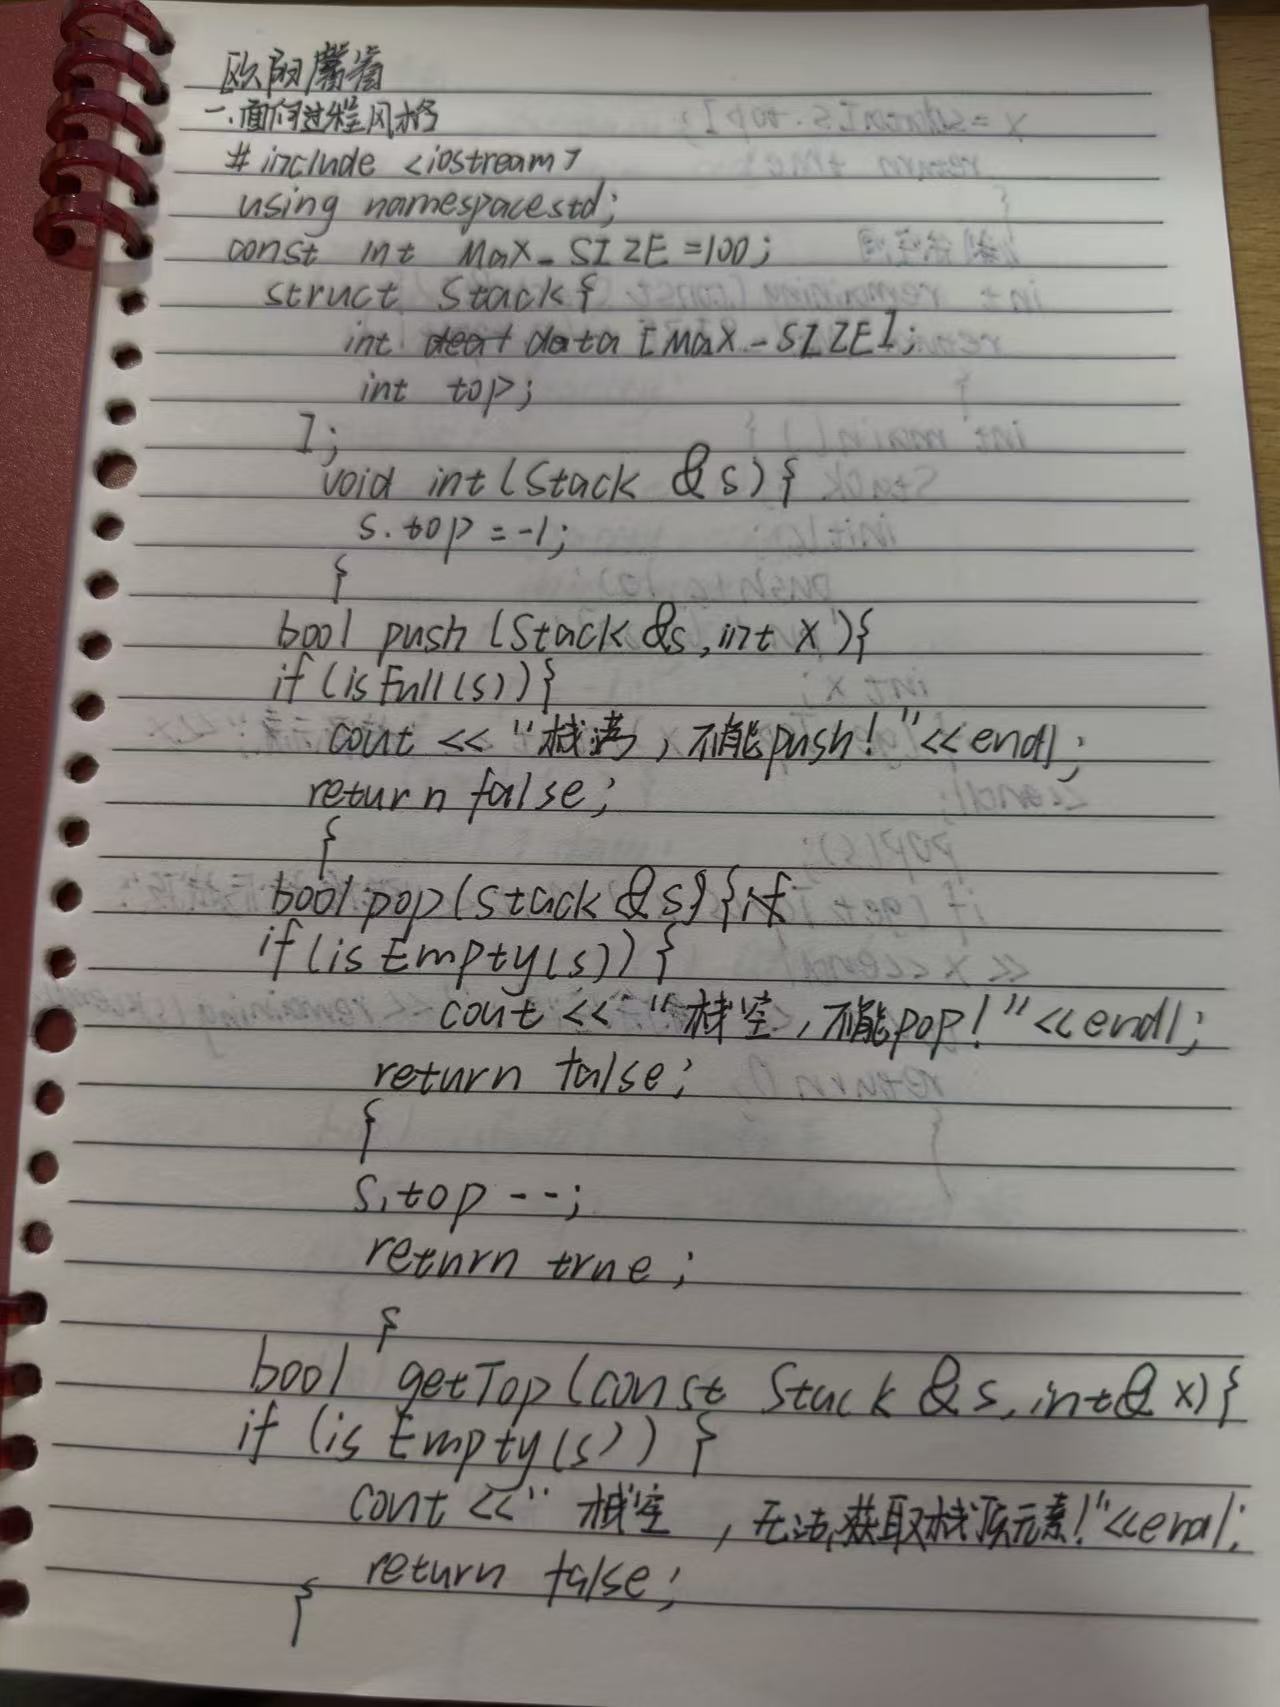 一.面向过程风格
#include <iostream>
using namespacestd;
const int MaX_SIZE=100;
struct Stack{
int data [MaX_SIZE];
int top;
];
void int(Stack &s){
s.top=-1;
{
bool push(Stack &s,int x){
if(isFull(s)){
cout << "栈满，不能push！"<<endl;
return false;
{
bool pop(Stack &s){if
if(isEmpty(s)){
cout << "栈空，不能pop！"<<endl;
return false;
{
s.top--;
return true;
{
bool getTop(const Stack &s,int& x){
if(isEmpty(s)){
cout <<" 栈空，无法获取栈顶元素！"<<endl;
return false;
{